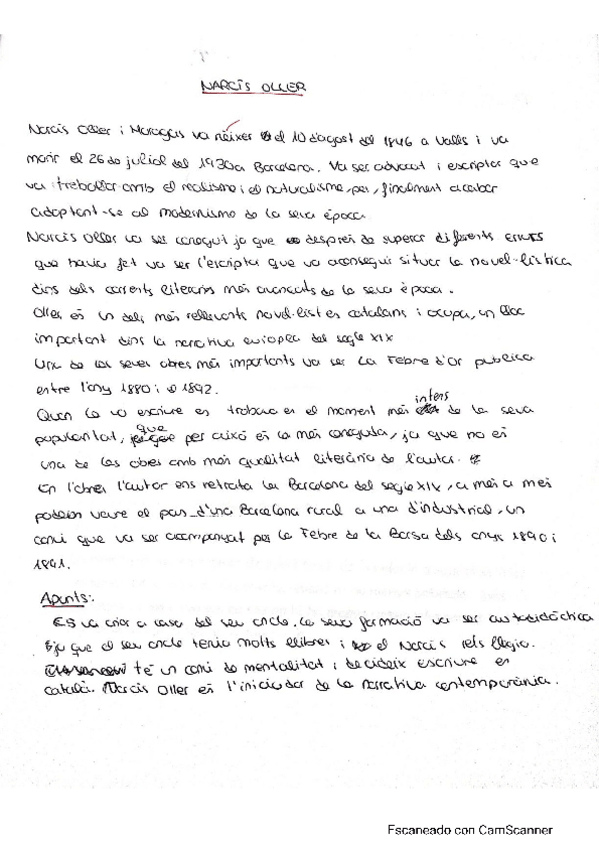 NARCÍS OLLER
Narcís Oller i Moragas va néixer el 10 d'agost del 1846 a Valls i va
morir el 26 de juliol del 1930 a Barcelona. Va ser advocat i escriptor que
va treballar amb el realisme i el naturalisme, per, finalment acabar
adaptant-se al modernisme de la seva època.
Narcís Oller va ser conegut ja que després de superar diferents errors
que havia fet va ser l'escriptor que va aconseguir situar la novel·lística
dins dels corrents literaris més avançats de la seva època.
Oller és un dels més rellevants novel·listes catalans i ocupa, un lloc
important dins la narrativa europea del segle XIX
Una de les seves obres més importants va ser La Febre d'or publicada
entre l'any 1880 i 1892.
Quan la va escriure es trobava en el moment més intens de la seva
popularitat, que per això és la més coneguda, ja que no és
una de les obres amb més qualitat literària de l'autor.
En l'obra l'autor ens retrata la Barcelona del segle XIX, a més a més
podem veure el pas d'una Barcelona rural a una d'industrial, un
canvi que va ser acompanyat per la Febre de la Borsa dels anys 1890 i
1891.
Apunts:
Es va criar a casa del seu oncle, la seva formació va ser autodidàctica
ja que el seu oncle tenia molts llibres i el Narcís se'ls llegia.
té un canvi de mentalitat i decideix escriure en
català. Narcís Oller és l'iniciador de la narrativa contemporània.
Escaneado con CamScanner